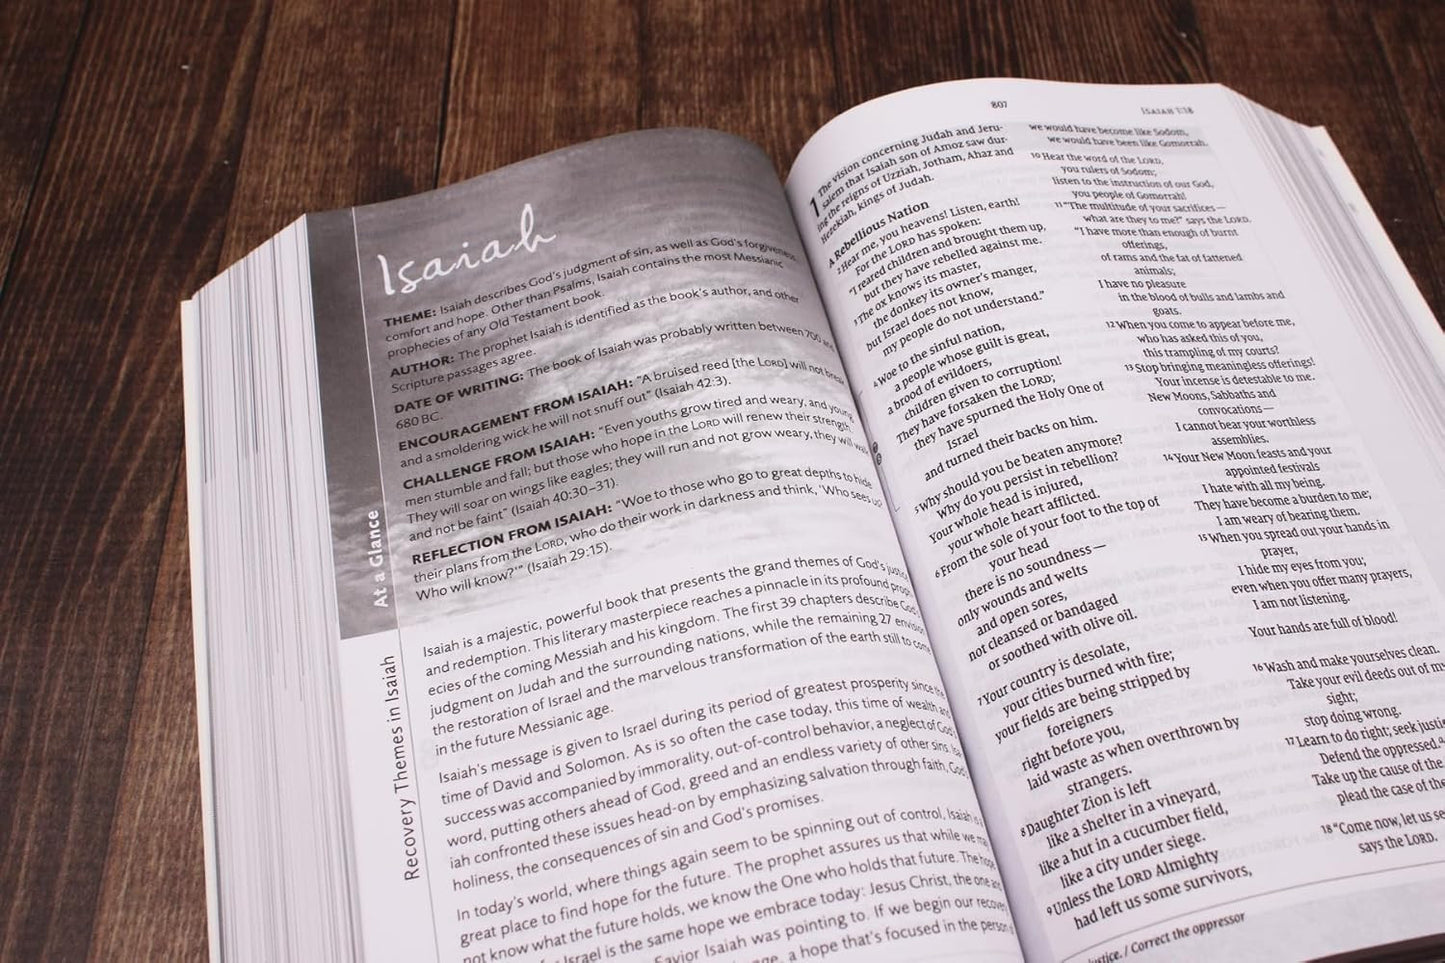 Isaiah
THEME: Isaiah describes God's judgment of sin, as well as God's forgiveness,
comfort and hope. Other than Psalms, Isaiah contains the most Messianic
prophecies of any Old Testament book.
AUTHOR: The prophet Isaiah is identified as the book's author, and other
Scripture passages agree.
DATE OF WRITING: The book of Isaiah was probably written between 700 and
680 BC.
ENCOURAGEMENT FROM ISAIAH: "A bruised reed [the LORD] will not break,
and a smoldering wick he will not snuff out" (Isaiah 42:3).
CHALLENGE FROM ISAIAH: "Even youths grow tired and weary, and young
men stumble and fall; but those who hope in the LORD will renew their strength.
They will soar on wings like eagles; they will run and not grow weary, they will walk
and not be faint" (Isaiah 40:30–31).
REFLECTION FROM ISAIAH: "Woe to those who go to great depths to hide
their plans from the LORD, who do their work in darkness and think, 'Who sees us?
Who will know?'" (Isaiah 29:15).
At a Glance
Isaiah is a majestic, powerful book that presents the grand themes of God's justice
and redemption. This literary masterpiece reaches a pinnacle in its profound proph-
ecies of the coming Messiah and his kingdom. The first 39 chapters describe God's
judgment on Judah and the surrounding nations, while the remaining 27 envision
the restoration of Israel and the marvelous transformation of the earth still to come
in the future Messianic age.
Isaiah's message is given to Israel during its period of greatest prosperity since the
time of David and Solomon. As is so often the case today, this time of wealth and
success was accompanied by immorality, out-of-control behavior, a neglect of God's
word, putting others ahead of God, greed and an endless variety of other sins. Isa-
iah confronted these issues head-on by emphasizing salvation through faith, God's
holiness, the consequences of sin and God's promises.
In today's world, where things again seem to be spinning out of control, Isaiah is a
great place to find hope for the future. The prophet assures us that while we may
not know what the future holds, we know the One who holds that future. The hope
for Israel is the same hope we embrace today: Jesus Christ, the one and
Savior Isaiah was pointing to. If we begin our recovery
a hope that's focused in the person
Recovery Themes in Isaiah
807
ISAIAH 1:18
1 The vision concerning Judah and Jeru-
salem that Isaiah son of Amoz saw dur-
ing the reigns of Uzziah, Jotham, Ahaz and
Hezekiah, kings of Judah.
A Rebellious Nation
2 Hear me, you heavens! Listen, earth!
For the LORD has spoken:
"I reared children and brought them up,
but they have rebelled against me.
3 The ox knows its master,
the donkey its owner's manger,
but Israel does not know,
my people do not understand."
4 Woe to the sinful nation,
a people whose guilt is great,
a brood of evildoers,
children given to corruption!
They have forsaken the LORD;
they have spurned the Holy One of
Israel
and turned their backs on him.
5 Why should you be beaten anymore?
Why do you persist in rebellion?
Your whole head is injured,
your whole heart afflicted.
6 From the sole of your foot to the top of
your head
there is no soundness—
only wounds and welts
and open sores,
not cleansed or bandaged
or soothed with olive oil.
7 Your country is desolate,
your cities burned with fire;
your fields are being stripped by
foreigners
right before you,
laid waste as when overthrown by
strangers.
8 Daughter Zion is left
like a shelter in a vineyard,
like a hut in a cucumber field,
like a city under siege.
9 Unless the LORD Almighty
had left us some survivors,
we would have become like Sodom,
we would have been like Gomorrah.
10 Hear the word of the LORD,
you rulers of Sodom;
listen to the instruction of our God,
you people of Gomorrah!
11 "The multitude of your sacrifices—
what are they to me?" says the LORD.
"I have more than enough of burnt
offerings,
of rams and the fat of fattened
animals;
I have no pleasure
in the blood of bulls and lambs and
goats.
12 When you come to appear before me,
who has asked this of you,
this trampling of my courts?
13 Stop bringing meaningless offerings!
Your incense is detestable to me.
New Moons, Sabbaths and
convocations—
I cannot bear your worthless
assemblies.
14 Your New Moon feasts and your
appointed festivals
I hate with all my being.
They have become a burden to me;
I am weary of bearing them.
15 When you spread out your hands in
prayer,
I hide my eyes from you;
even when you offer many prayers,
I am not listening.
Your hands are full of blood!
16 Wash and make yourselves clean.
Take your evil deeds out of my
sight;
stop doing wrong.
17 Learn to do right; seek justice.
Defend the oppressed.a
Take up the cause of the
plead the case of the
18 "Come now, let us se
says the LORD.
justice. / Correct the oppressor